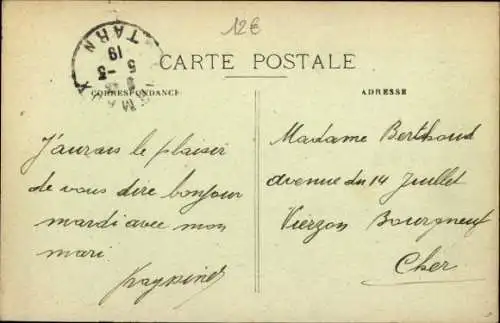 12€
TARN
19
5-3
CARTE POSTALE
CORRESPONDANCE
ADRESSE
J'aurais le plaisir
de vous dire bonjour
mardi avec mon
mari
Madame Berthoud
avenue du 14 Juillet
Vierzon Bourgneuf
Cher